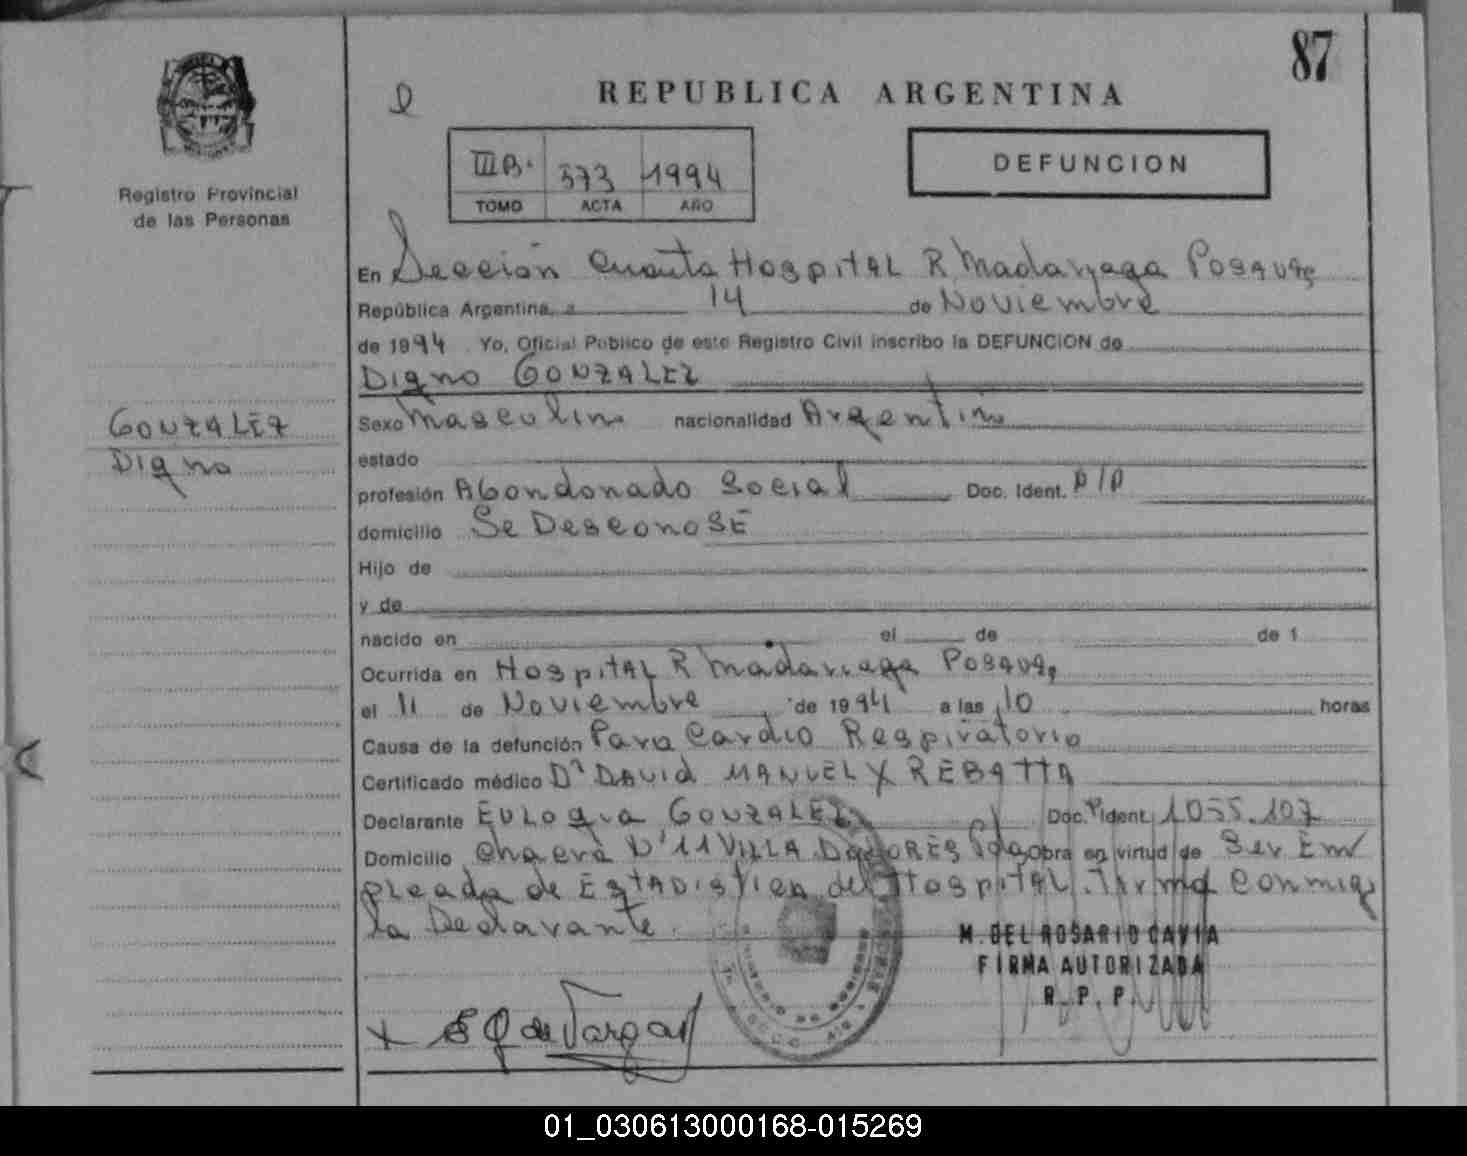 87
REPUBLICA ARGENTINA
Registro Provincial
de las Personas
III B. 373 1994
TOMO ACTA AÑO
DEFUNCION
En Sección Cuarta Hospital R Madaryaga Posadas
República Argentina, a 14 de Noviembre
de 1994 Yo, Oficial Público de este Registro Civil inscribo la DEFUNCION de
Digno GONZALEZ
GONZALEZ
Digno
Sexo Masculino nacionalidad Argentino
estado
profesión Abondonado Social Doc. Ident.
domicilio Se DesconoSE
Hijo de
y de
nacido en el de de 1
Ocurrida en Hospital R Madariaga Posadas
el 11 de Noviembre de 1994 a las 10 horas
Causa de la defunción Paro Cardio Respiratorio
Certificado médico Dr DAVid MANUEL REBATTA
Declarante Eulogia GONZALEZ Doc. Ident. 1055.107
Domicilio Chacra 11 VILLA DOLORES Obra en virtud de Ser Em
pleada de Estadistica del Hospital. Firma Conmigo
la Declarante.
M. DEL ROSARIO CAVIA
FIRMA AUTORIZADA
R. P. P.
de Vargas
01_030613000168-015269